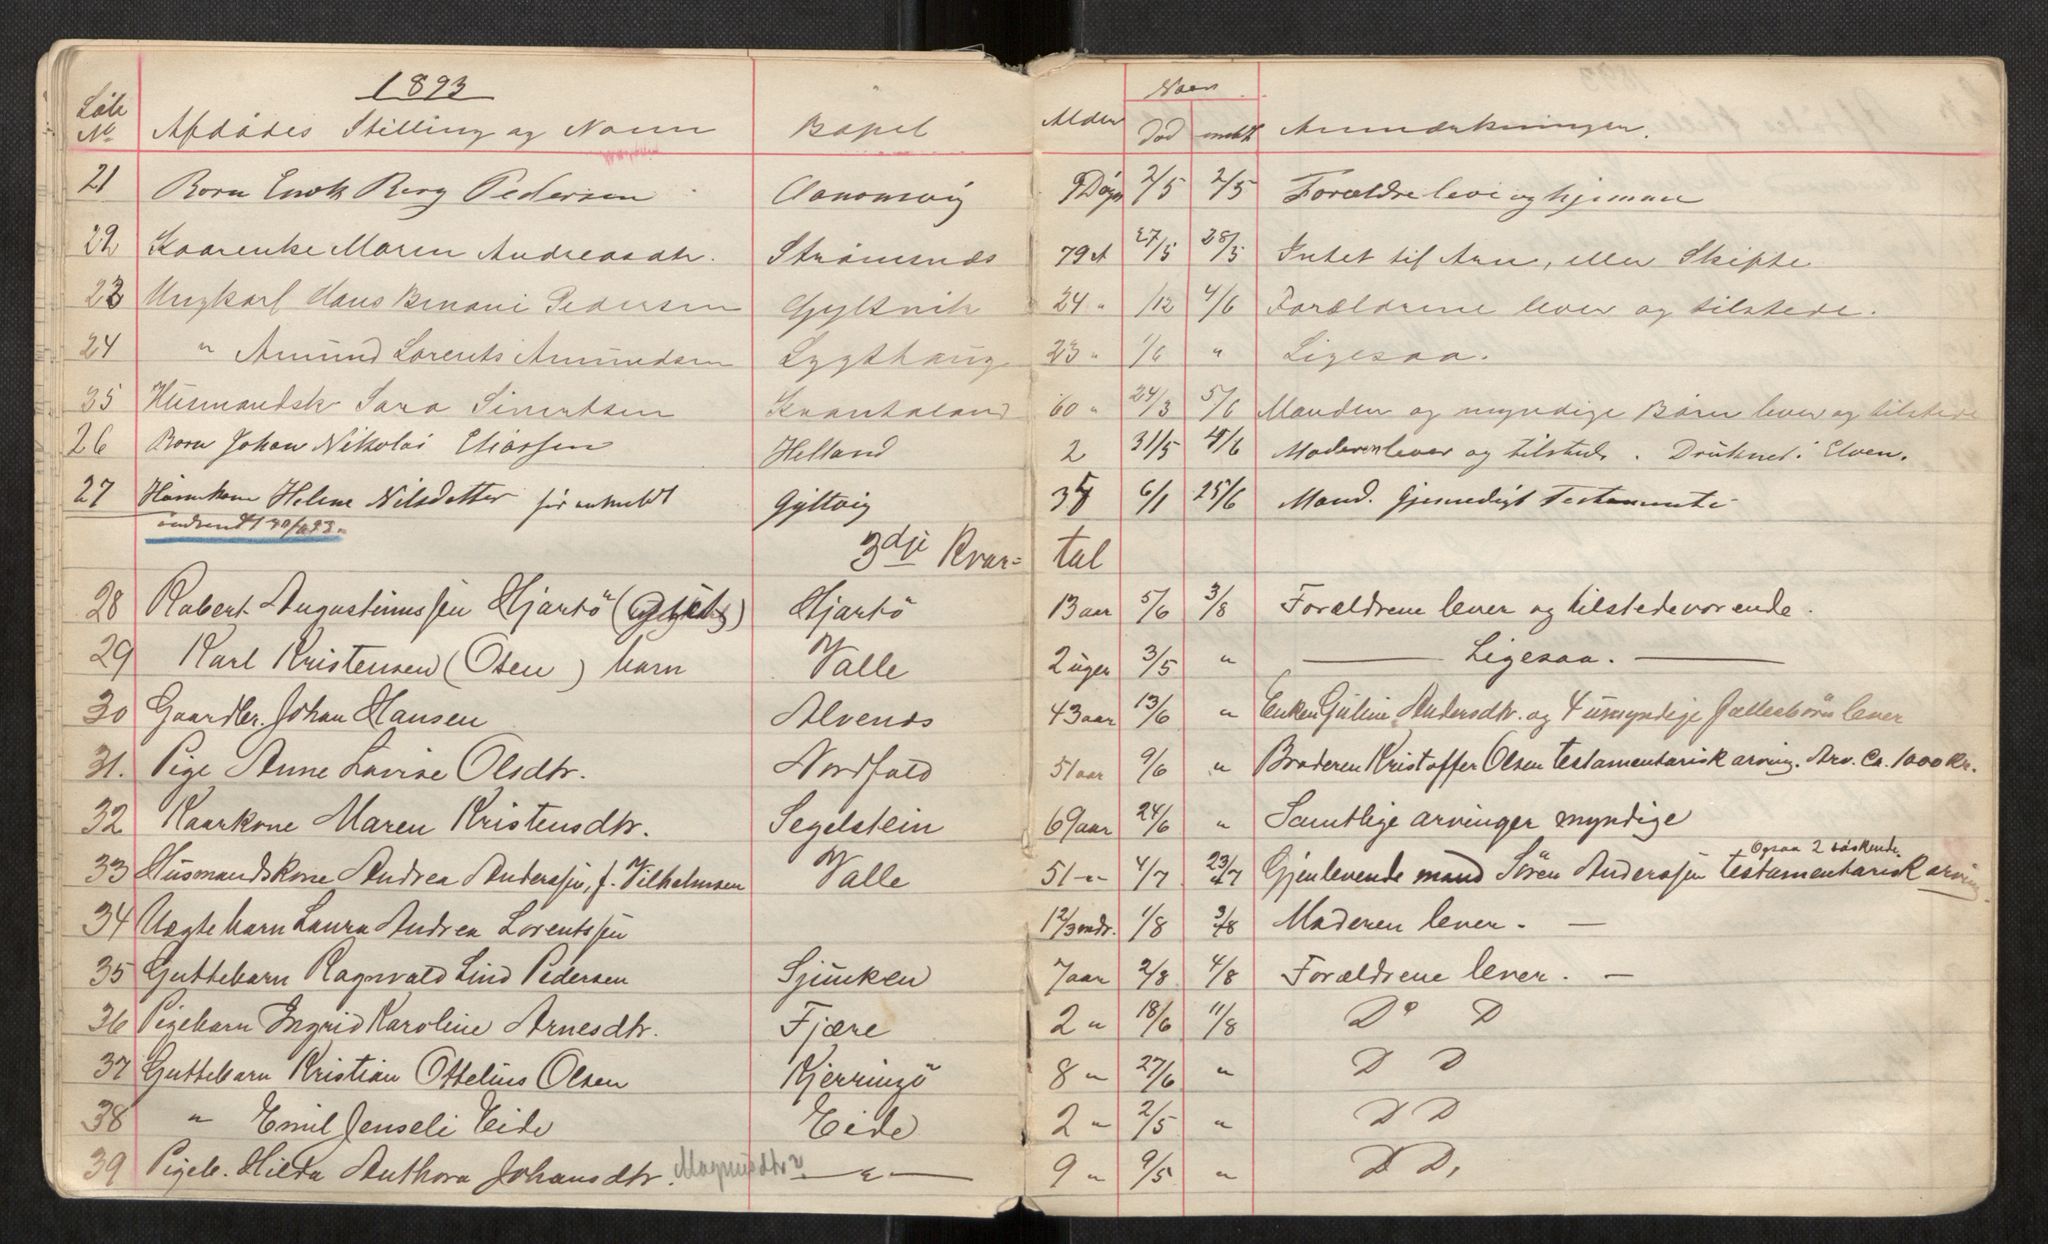 1893
Løb No Afdødes Stilling og Navn Bopel Alder Naar Død meldt Anmærkninger.
21 Barn Enok Berg Pedersen Aanonsvig 9 Døgn 2/5 2/5 Forældre leve og hjemme
22 Kaarenke Maren Andreasdtr. Strømsnæs 79 A 27/5 28/5 Intet til Arv, eller Skifte
23 Ungkarl Hans Benoni Pedersen Gyltvik 24 " /12 4/6 Forældrene lever og tilstede.
24 " Amund Lorents Amundsen Lygthaug 23 " 1/6 " Ligesaa.
35 Husmandsk Sara Sivertsen Kvantoland 60 " 24/3 5/6 Manden og myndige Børn lever og tilstede
26 Barn Johan Nikolai Eliassen Helland 2 31/5 /6 Moderen lever og tilstede. Druknet i Elven.
27 Huskone Helene Nilsdatter før anmeldt Gyltvig 6/1 25/6 Mand. Gjensidigt Testamente
indsendt 30/6 93.
3dje Kvar= tal
28 Robert Augustinussen Hjartö Hjartö 13 aar 5/6 3/8 Forældrene lever og tilstedeværende.
29 Karl Kristensen (Osen) barn Valle 2 uger 3/5 " — Ligesaa. —
30 Gaardbr. Johan Hansen Alvenes 43 aar 13/6 " Enken Guline Andersdtr. og 4 umyndige Fællesbörn lever
31. Pige Anne Lovise Olsdtr. Nordfold 51 aar 9/6 " Broderen Kristoffer Olsen testamentarisk arving. Arv. Ca. 1000 Kr.
32 Kaarkone Maren Kristensdtr. Segelstein 69 aar 24/6 " Samtlige arvinger myndige
33 Husmandskone Andrea Anderssen, f. Vilhelmsen Valle 51 " 4/7 23/7 Gjenlevende mand Sören Anderssen testamentarisk arving
Ogsaa 2 söskende.
34 Uægte barn Laura Andrea Lorentssen 1 2/3 mdr. 1/8 3/8 Moderen lever. —
35 Guttebarn Ragnvald Lind Pedersen Sjunken 7 aar 2/8 4/8 Forældrene lever. —
36 Pigebarn Ingrid Karoline Arnesdtr. Fjære 2 " 18/6 11/8 Do D
37 Guttebarn Kristian Ottelius Olsen Kjerringö 8 " 27/6 " D D
38 " Emil Jenseli Eide Eide 2 " 2/5 " D D
39 Pigeb. Hilda Anthora Johansdtr. Magnusdtr? — " — 9 " 9/5 " D D.